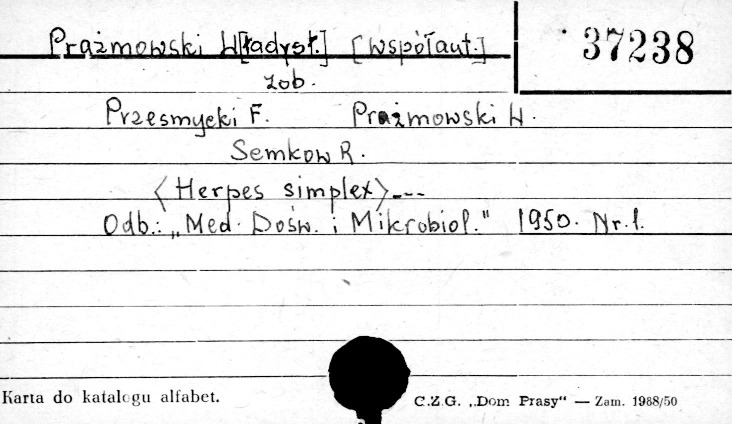 Prażmowski W[ładysł.] [współaut.]
37238
zob.
Przesmycki F. Prażmowski W.
Semkow R.
<Herpes simplex>---
Odb.: „Med. Dośw. i Mikrobiol." 1950. Nr.1.
Karta do katalogu alfabet.
C.Z.G. „Dom Prasy“ — Zam. 1988/50